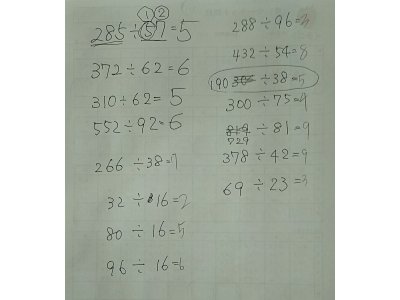 ① ②
285÷57=5
372÷62=6
310÷62=5
552÷92=6
266÷38=7
32÷16=2
80÷16=5
96÷16=6
288÷96=3
432÷54=8
190 ÷38=5
300÷75=4
÷81=9
729
378÷42=9
69÷23=3